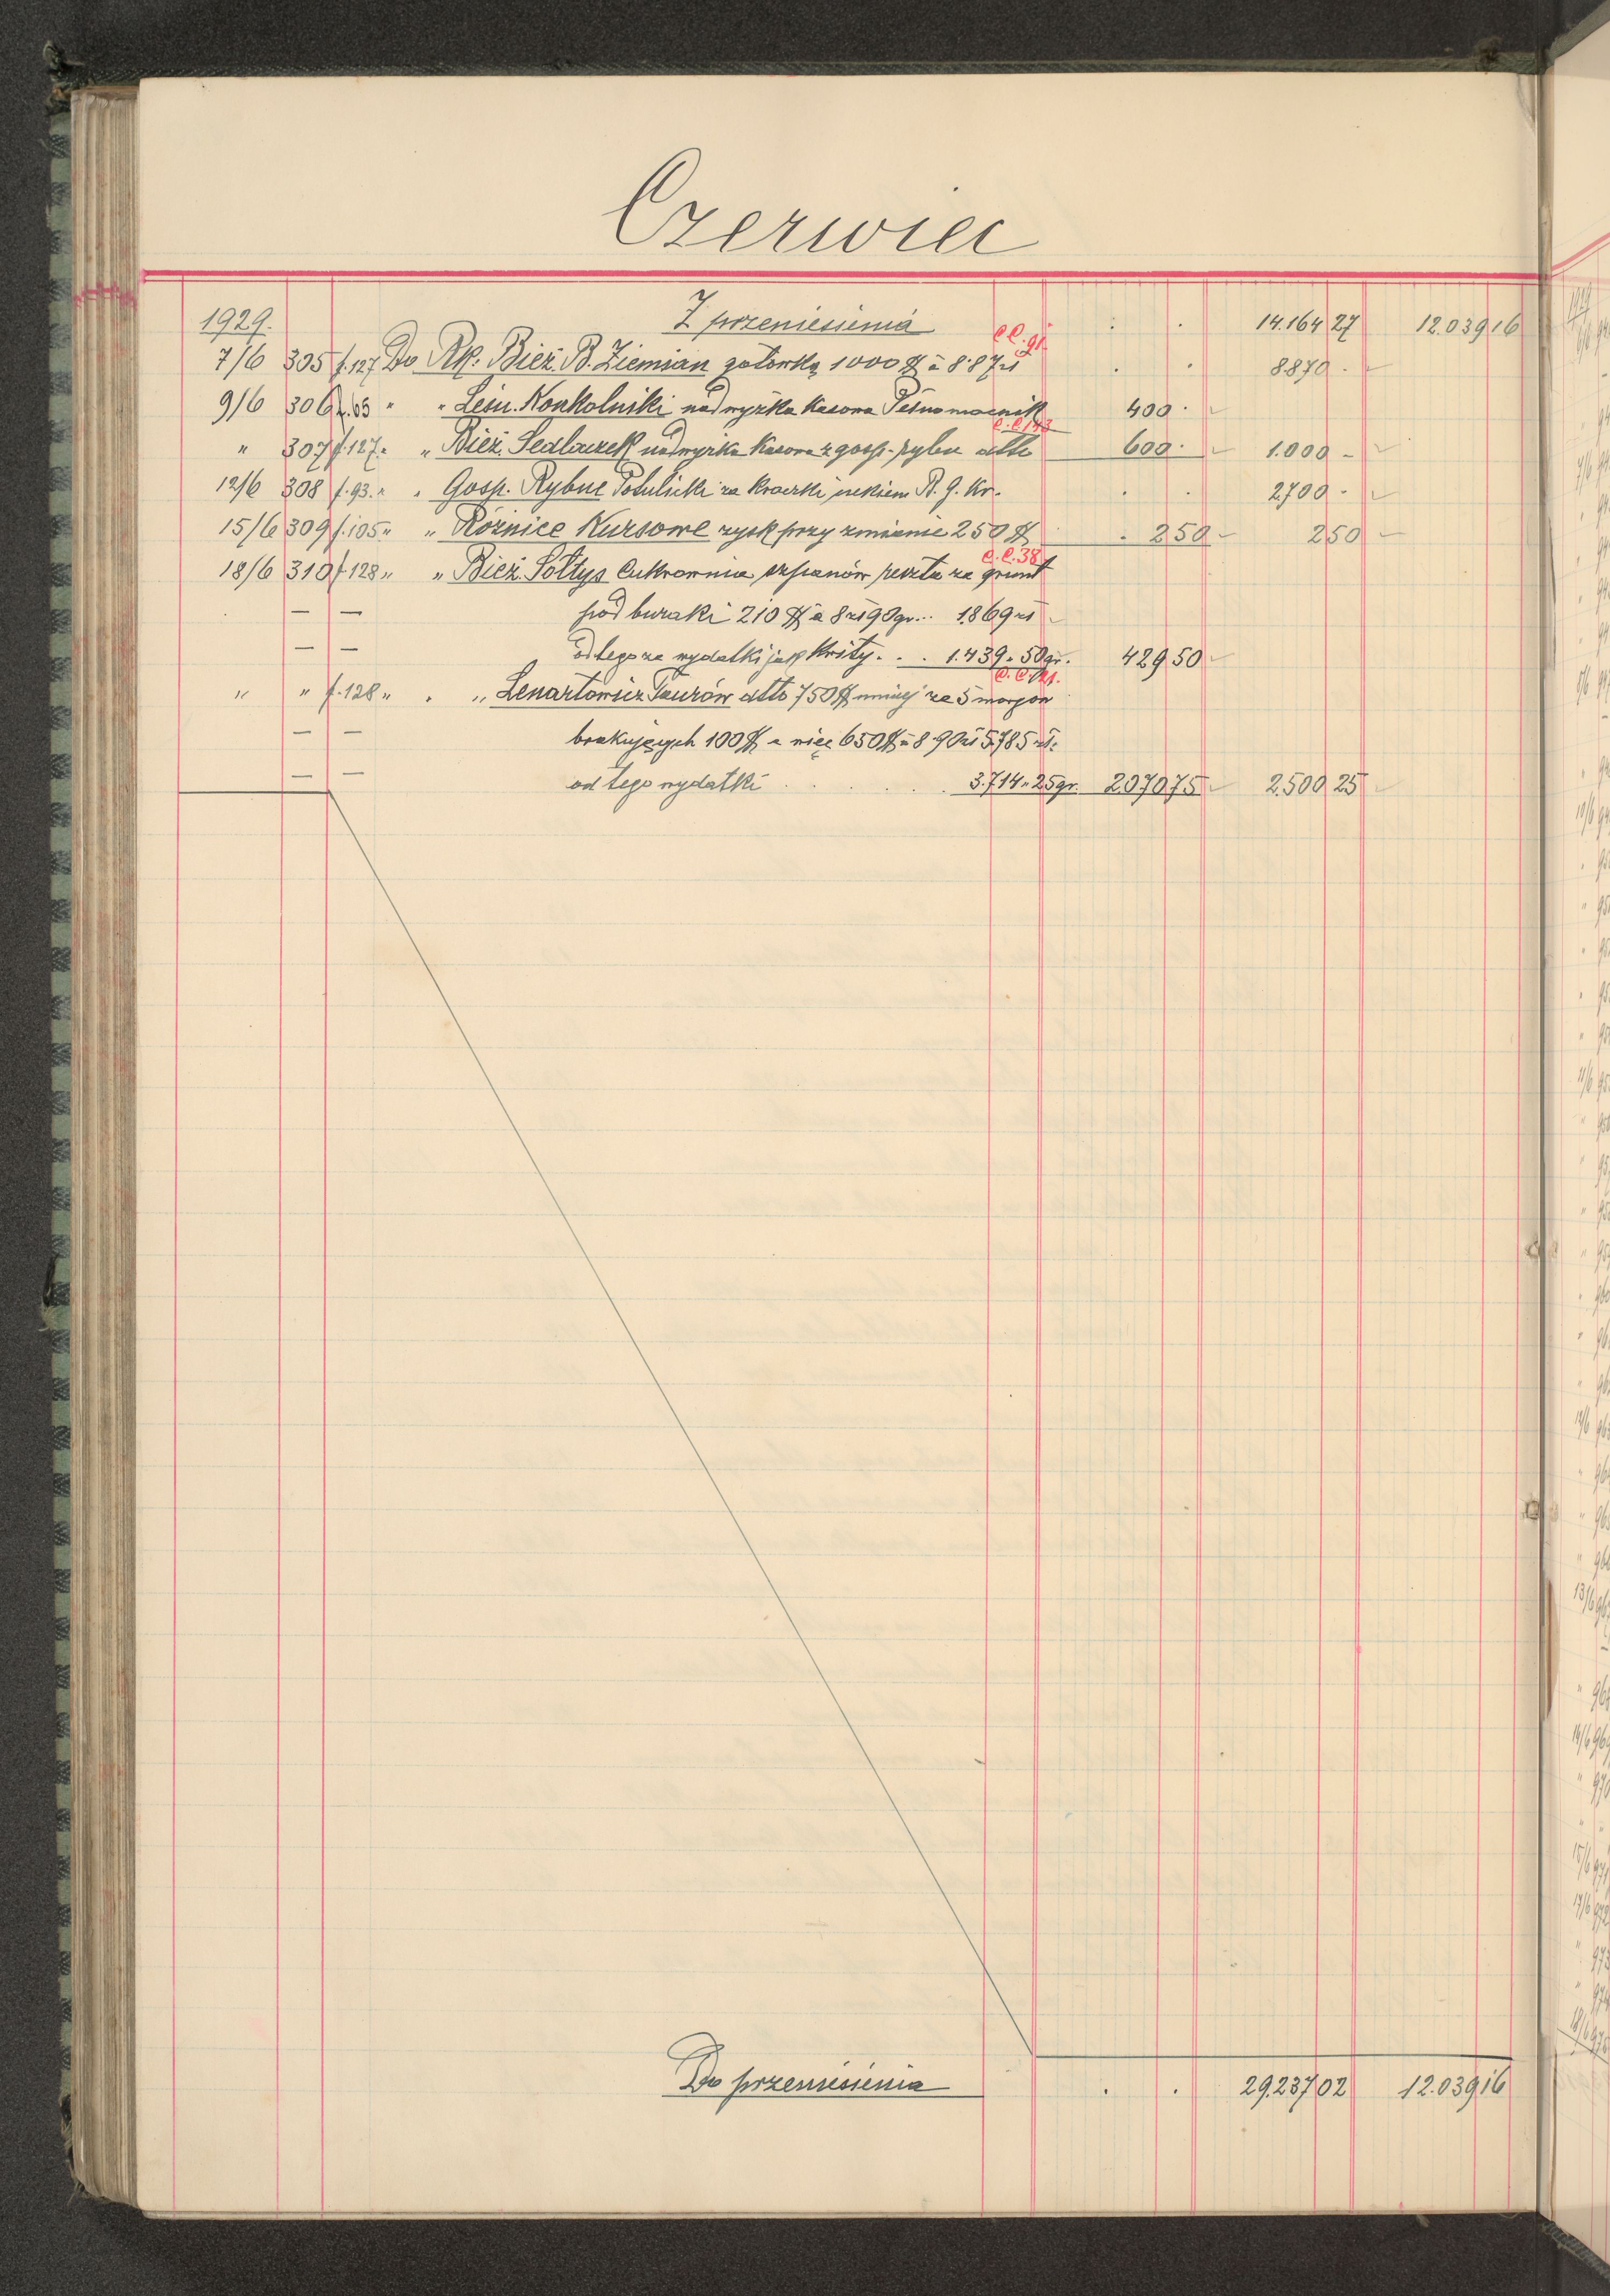 Czerwiec
1929. Z przeniesienia . . 14.164 27 12.039 16
C.C. 91.
7/6 305 f.127 Do Rk. Bież. B. Ziemian gotówką 1000 $ à 8.87 zł . . 8.870 .
9/6 306 f.65 " " Leśn. Konkolniki nadwyżka kasowa Pełnomocnik 400 .
" 307 f.127. " Bież. Sedlaczek nadwyżka kasowa z gosp. rybn dtto 600 . 1.000 -
12/6 308 f.93. " " Gosp. Rybne Potulicki za kroczki czekiem B. G. Kr. . . 2.700 .
15/6 309 f.105 " " Różnice Kursowe zysk przy zmianie 250 $ . 250 - 250 -
C.C. 38
18/6 310 f.128 " " Bież. Sołtys Cukrownia reszta za grunt
— — pod buraki 210 $ à 8 zł 90 gr... 1.869 zł
— — od tego za wydatki jak kwity . . . 1.439 " 50 gr. 429 50
" " f.128 " . " Lenartowicz dtto 750 $ mniej za 5 morgów
— — brakujących 100 $ a więc 650 $ à 8.90 zł 5.785 zł.
— — od tego wydatki . . . . . 3.714 " 25 gr. 2.070 75 2.500 25
Do przeniesienia . . 29.237 02 12.039 16